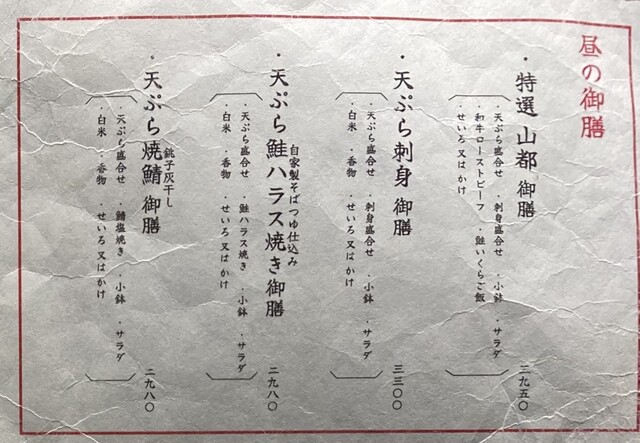 昼の御膳
・特選 山都 御膳
・天ぷら盛合せ ・刺身盛合せ ・小鉢 ・サラダ
・和牛ローストビーフ ・鮭いくらご飯
・せいろ又はかけ
二九五〇
・天ぷら刺身 御膳
・天ぷら盛合せ ・刺身盛合せ ・小鉢 ・サラダ
・白米 ・香物 ・せいろ又はかけ
三三〇〇
自家製そばつゆ仕込み
・天ぷら鮭ハラス焼き御膳
・天ぷら盛合せ ・鮭ハラス焼き ・小鉢 ・サラダ
・白米 ・香物 ・せいろ又はかけ
二九八〇
銚子灰干し
・天ぷら焼鯖 御膳
・天ぷら盛合せ ・鯖塩焼き ・小鉢 ・サラダ
・白米 ・香物 ・せいろ又はかけ
二九八〇